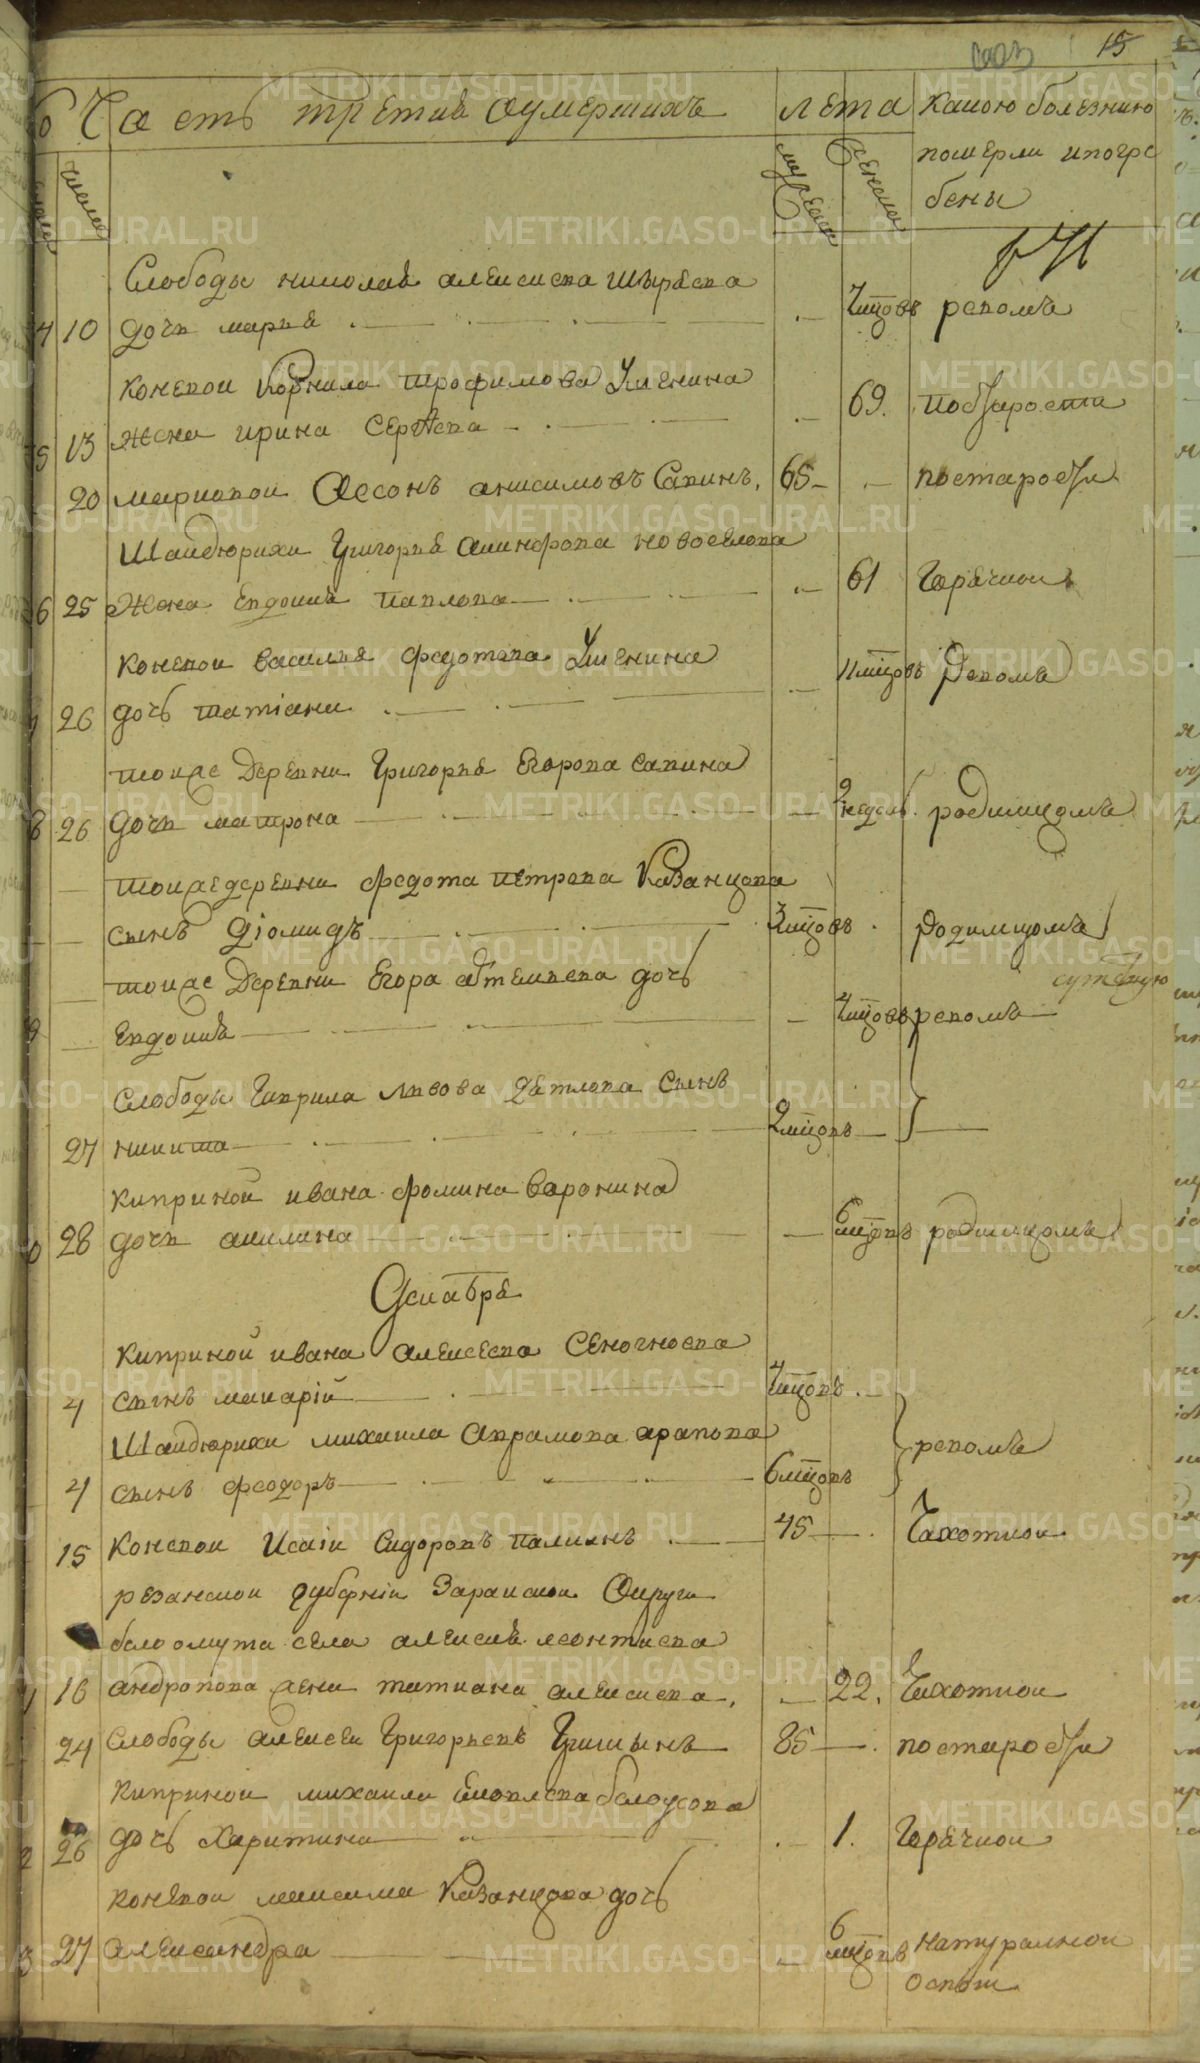 15
Часть третия оумершихъ
лета
какою болезнию
померли и погре
бены
число
мужеска
женска
Слободы николая алексиева
4 10 дочь марья 4 мцовъ ревомъ
коневой Корнила трофимова Уженина
5 13 жена ирина Сергѣева 69. по старости
20 мариской Ассонъ анисимовъ Савинъ, 65 по старости
Шайдюрихи Григорья Алинфова новоселова
6 25 Жена Евдокия павлова 61 Горячкой
коневой василья федотова Уженина
26 дочь татiана 11 мцовъ Ревомъ
тойже Деревни Григорья Егорова савина
8 26 дочь матрона 2 недель родимцомъ
тойже деревни федота петрова Казанцова
сынъ Дiомидъ 3 мцовъ родимцомъ
тойже Деревни Егора артемьева дочь
Евдокия 4 мцовъ ревомъ
Слободы Гаврила львова Детлова сынъ
27 никита 2 мцовъ
Киприной ивана фомина Воронина
28 дочь акилина 6 мцовъ родимцомъ
Декабря
Киприной ивана алексеева Сеногноева
4 сынъ макарiй 4 мцовъ
Шайдюрихи михаила Аврамова арапова
ревомъ
4 сынъ феодоръ 6 мцовъ
15 Коневой Исаiи Сидоровъ палкинъ 45 Чахоткой
резанской губернiи Зарайской Округи
белоомута села алексия леонтиева
16 андропова жена татиана алексиева, 22, Чихоткой
24 Слободы алексеи Григорьевъ 85 по старости
Киприной михаила белоусова
26 дочь Харитина 1. Горячкой
коневой максима Казанцова дочь
27 александра 6 мцовъ натуралной
Оспой
METRIKI.GASO-URAL.RU